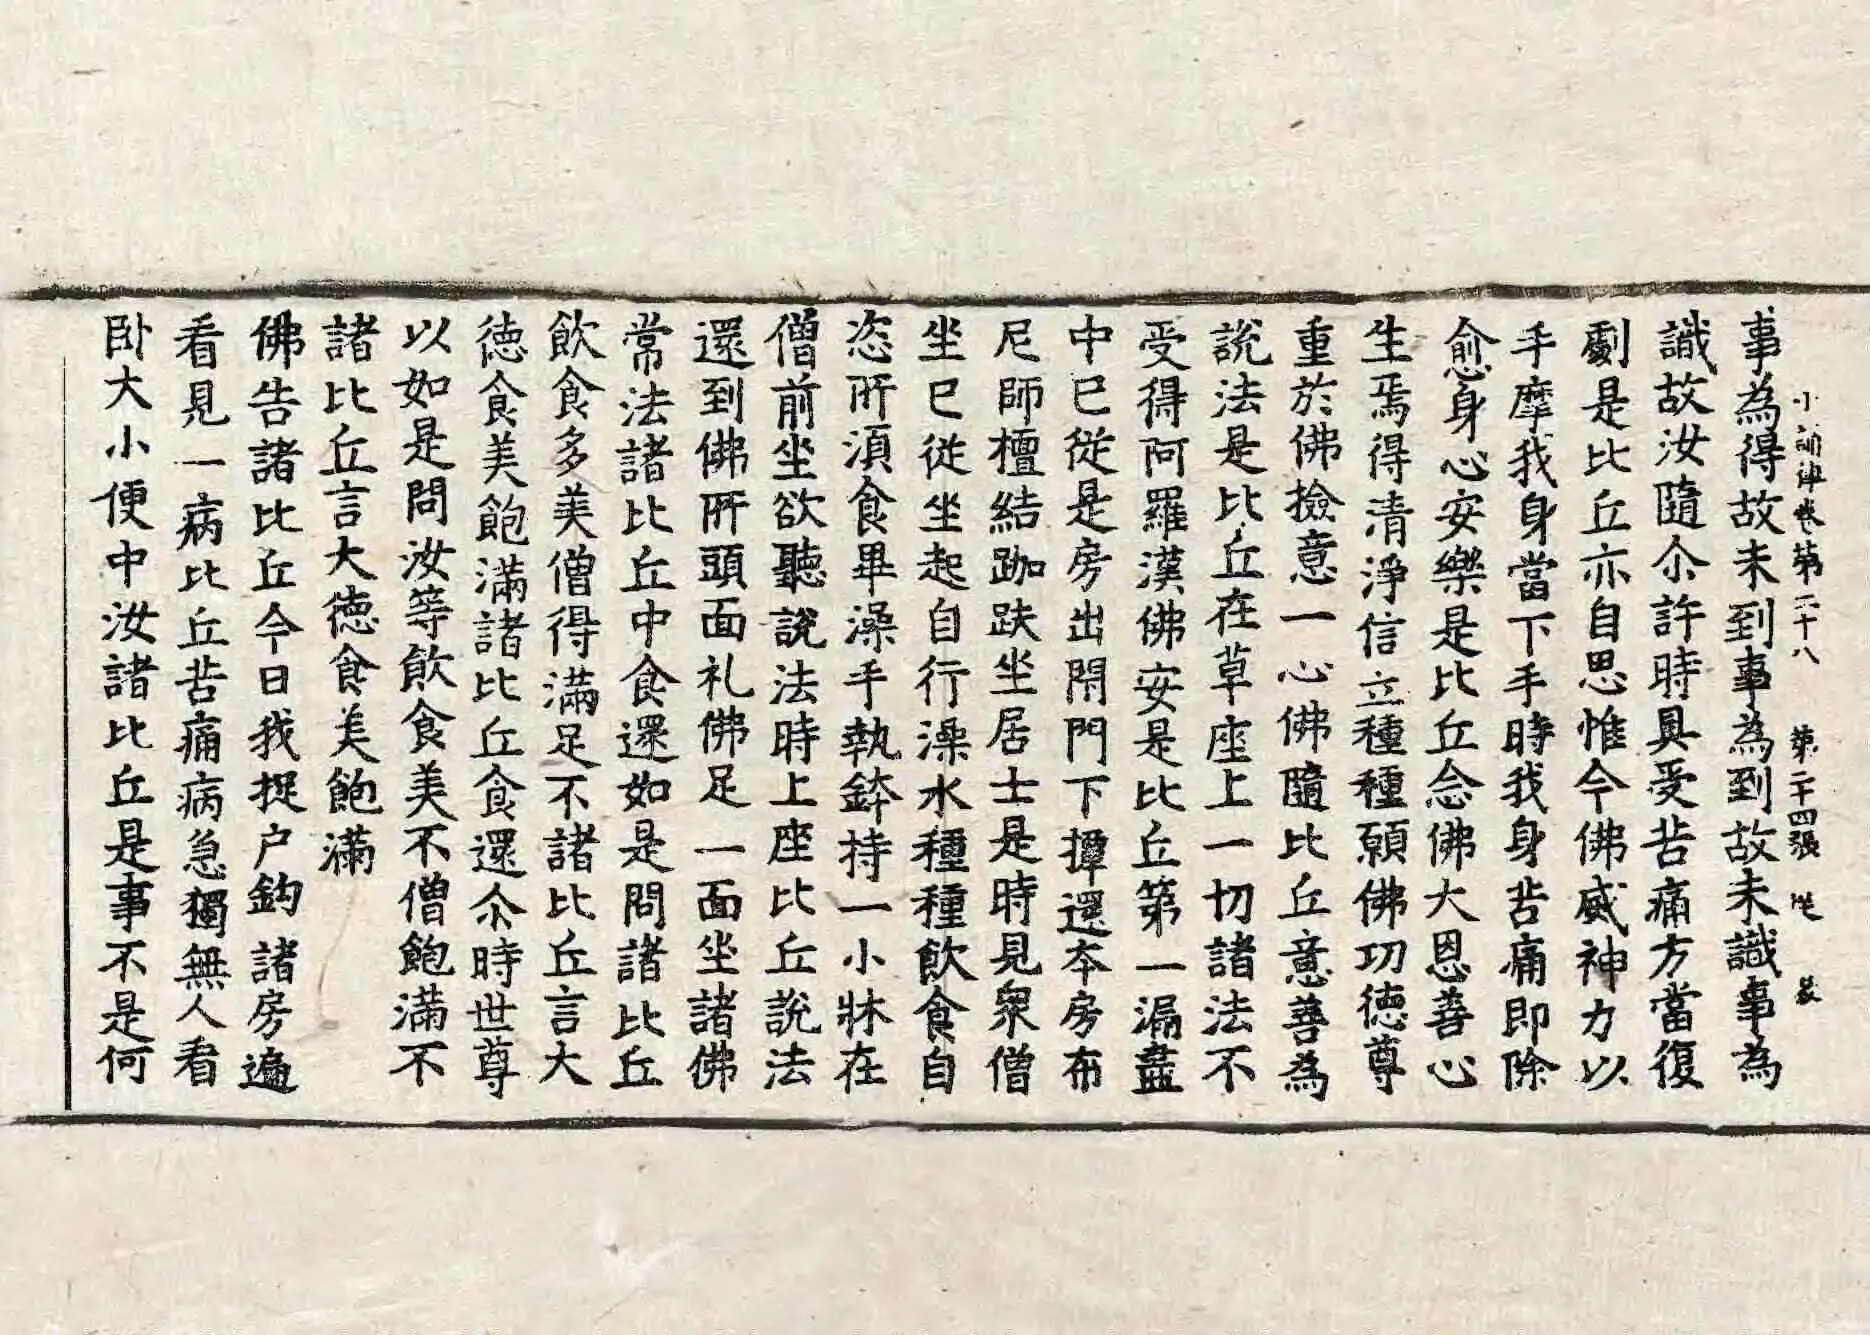 事為得故未到事為到故未識事為
小誦律卷第二十八 第二十四張 從
識故汝隨尒許時具受苦痛方當復
劇是比丘亦自思惟今佛威神力以
手摩我身當下手時我身苦痛即除
愈身心安樂是比丘念佛大恩善心
生焉得清淨信立種種願佛功徳尊
重於佛撿意一心佛隨比丘意善為
說法是比丘在草座上一切諸法不
受得阿羅漢佛安是比丘第一漏盡
中已従是房出閇門下撢還夲房布
尼師檀結跏趺坐居士是時見衆僧
坐已従坐起自行澡水種種飲食自
恣所湏食畢澡手執鉢持一小牀在
僧前坐欲聽說法時上座比丘說法
還到佛所頭面礼佛足一面坐諸佛
常法諸比丘中食還如是問諸比丘
飲食多美僧得滿足不諸比丘言大
徳食美飽滿諸比丘食還尒時世尊
以如是問汝等飲食美不僧飽滿不
諸比丘言大徳食美飽滿
佛告諸比丘今日我捉户鈎諸房遍
看見一病比丘苦痛病急獨無人看
卧大小便中汝諸比丘是事不是何